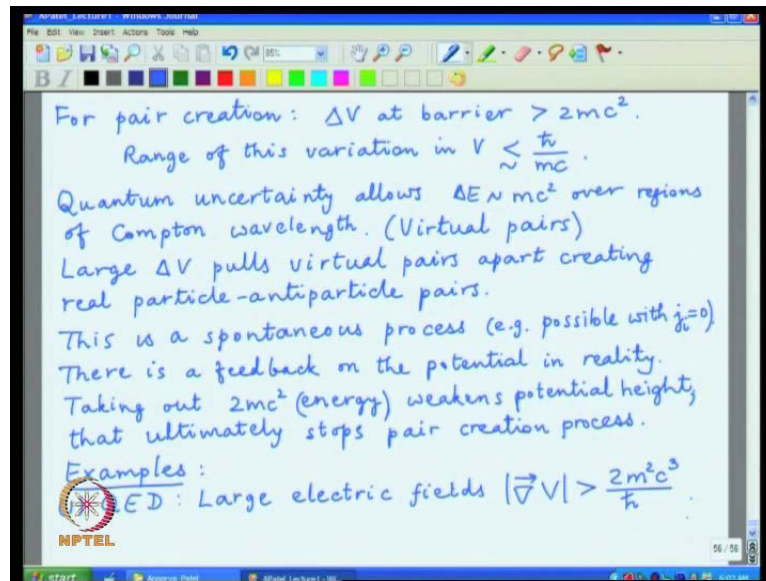 APatel_Lecture1 - Windows Journal
File Edit View Insert Actions Tools Help
85%
B I
For pair creation: ΔV at barrier > 2mc².
Range of this variation in V ≲ ħ/mc.
Quantum uncertainty allows ΔE ~ mc² over regions
of Compton wavelength. (Virtual pairs)
Large ΔV pulls virtual pairs apart creating
real particle-antiparticle pairs.
This is a spontaneous process (e.g. possible with jᵢ=0)
There is a feedback on the potential in reality.
Taking out 2mc² (energy) weakens potential height,
that ultimately stops pair creation process.
Examples:
QED: Large electric fields |∇⃗V| > 2m²c³/ħ.
NPTEL
56/56
start
APatel_Lecture1 - Wi...